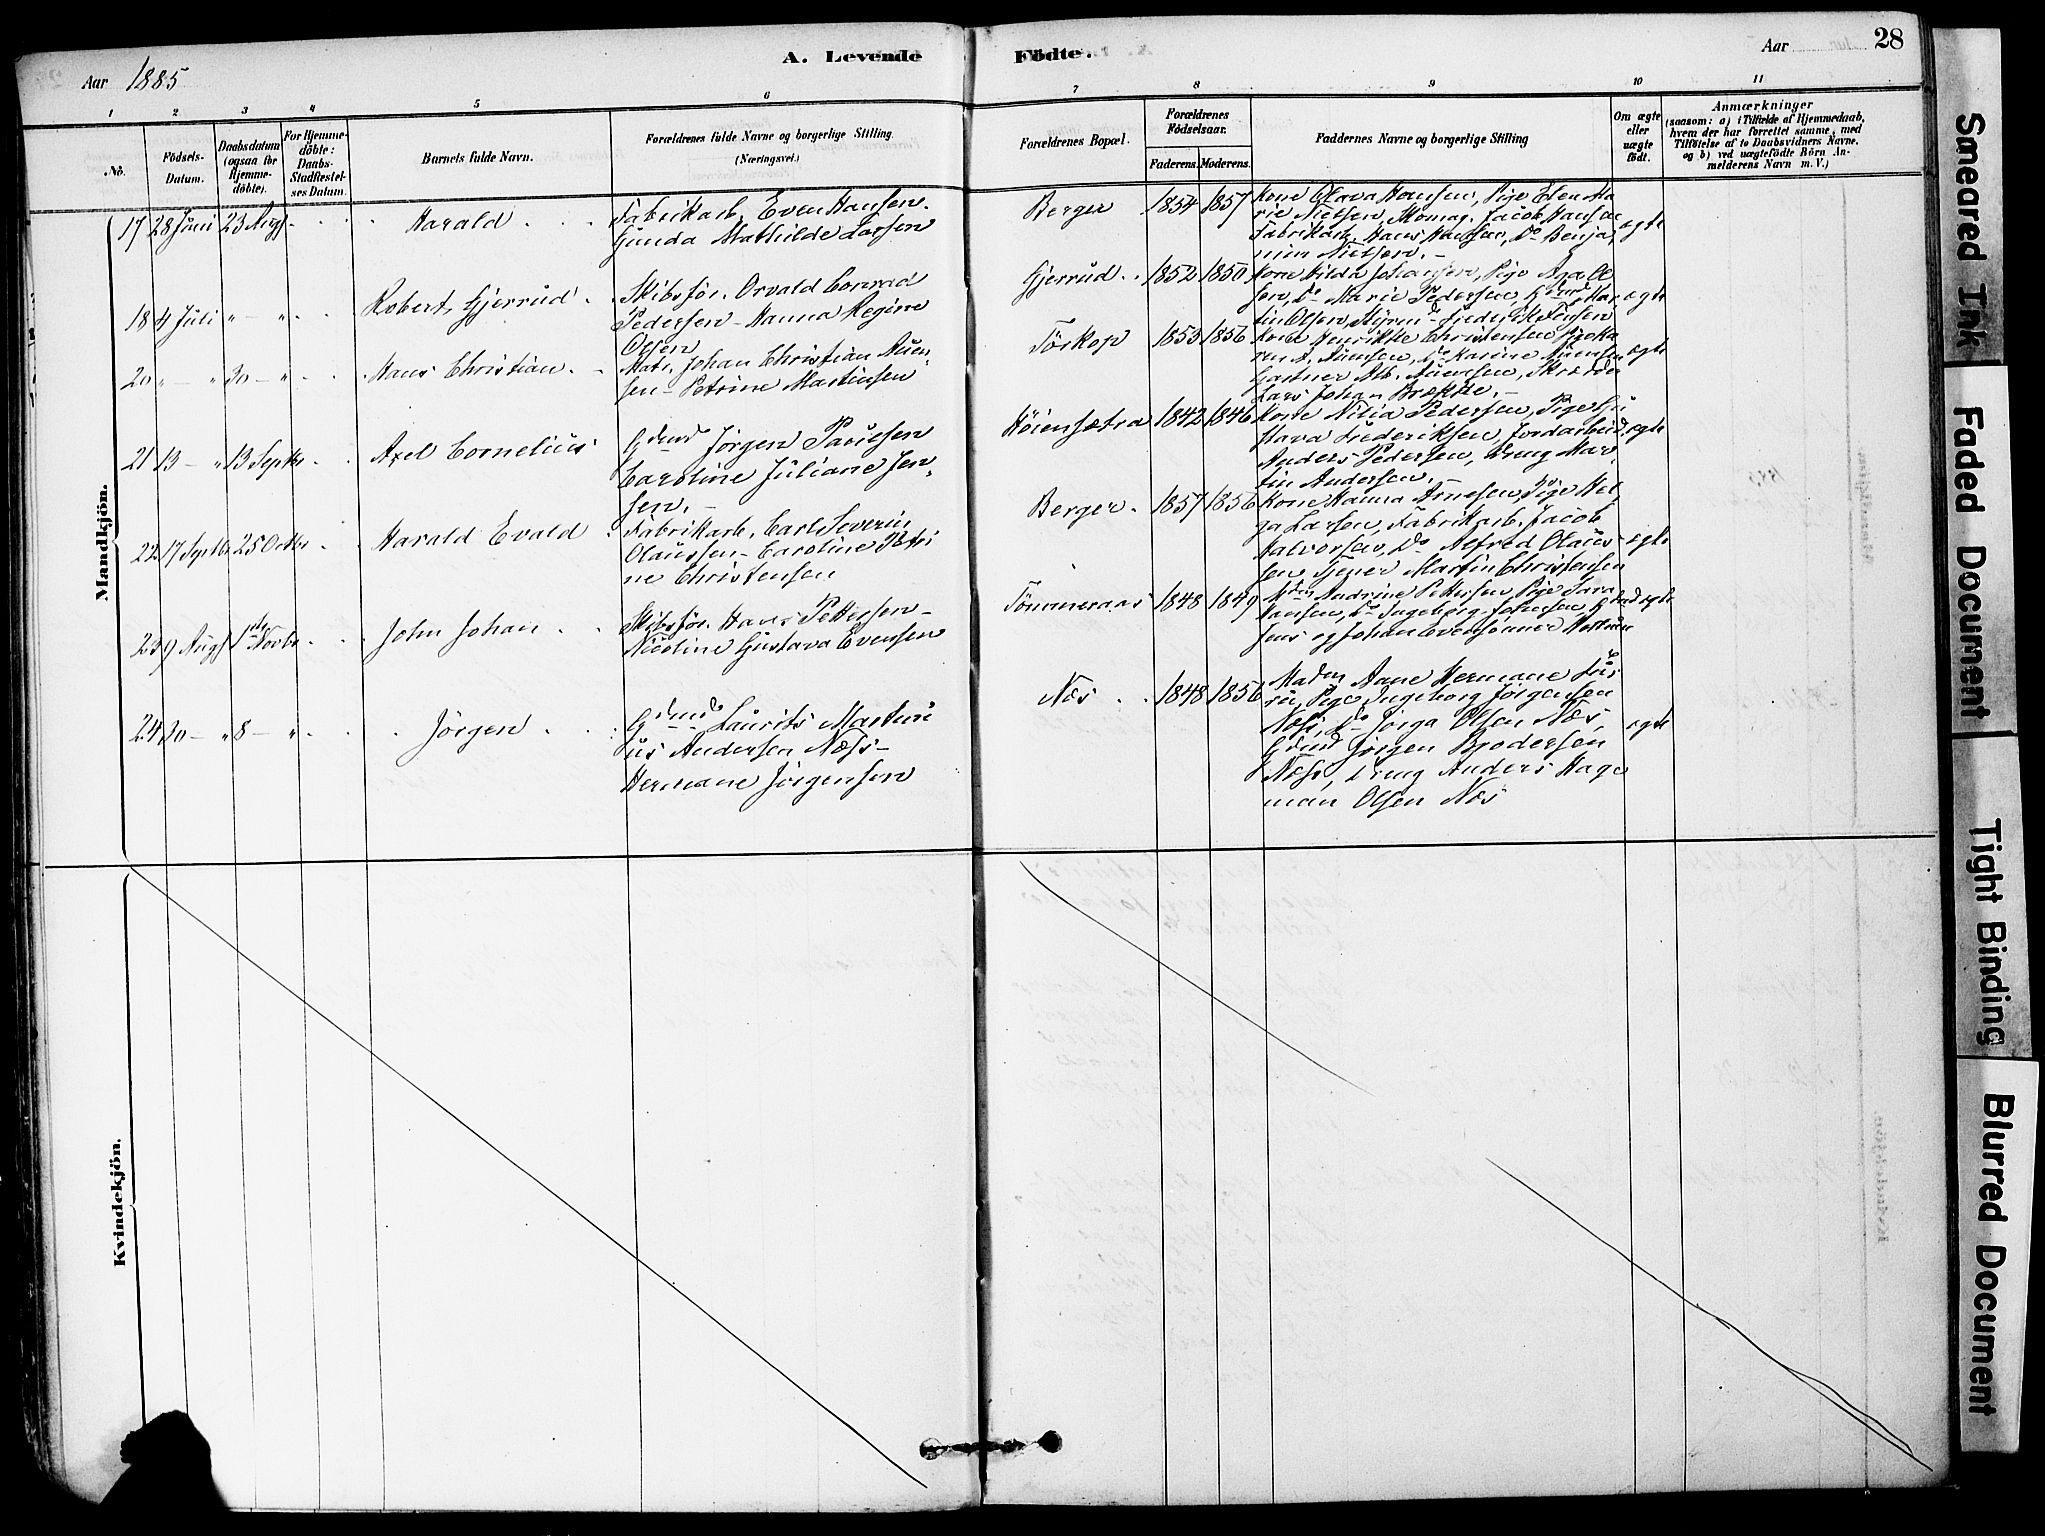 Aar 1885
A. Levende
Födte.
Aar
28
1 2 3 4 5 6
7 8 9 10 11
No. Födsels-Datum. Daabsdatum (ogsaa for Hjemme-döbte). For Hjemme-döbte: Daabs-Stadfæstel-ses Datum. Barnets fulde Navn. Forældrenes fulde Navne og borgerlige Stilling. (Næringsvei.)
Forældrenes Bopæl. Forældrenes Födselsaar. Faderens. Moderens. Faddernes Navne og borgerlige Stilling Om ægte eller uægte födt. Anmærkninger (saasom: a) i Tilfælde af Hjemmedaab, hvem der har forrettet samme, med Tilföielse af to Daabsvidners Navne. og b) ved uægtefödte Börn An-melderens Navn m. V.)
Mandkjön.
17 28 Juni 23 Aug. Harald Fabrikarb. Even Hansen.
Gunda Mathilde Larsen
Berger 1854 1857 Kone Olava Hansen, Pige Elen Ma
rie Nielsen, Skomag. Jacob Hansen
Fabrikarb. Hans Hansen, Do Benja
min Nielsen. - ægte
18 4 Juli " - " Robert Gjerrud Skibsfør. Orvald Conrad
Pedersen - Hanna Regine
Olsen
Gjerrud 1852 1850 Kone Hilda Johansen, Pige Ana Ol
sen, Do Marie Pedersen, Gdmd Mar
tin Olsen, Styrmd Frederik Jensen ægte
20 " - " 30 - " Hans Christian Matr. Johan Christian Auen
sen - Petrine Martinsen
Törkop 1853 1856 Kone Henrikke Christensen Pige Ka
ren A. Auensen, Do Karine Auensen
Gartner Alb. Auensen, Skrædder
Lars Johan Brække. - ægte
21 13 - " 13 Septbr Axel Cornelius Gdmd Jörgen Paulsen
Caroline Juliane Jen
sen. -
Höiensætra 1842 1846 Kone Nilia Pedersen, Pige Gu
stava Frederiksen, Jordarbeid.
Anders Pedersen, Dreng Mar
tin Andersen. - ægte
22 17 Septbr 25 Octbr Harald Evald Fabrikarb. Carl Severin
Olaussen - Caroline Petri
ne Christensen
Berger 1857 1856 Kone Hanna Arnesen, Pige Hel
ga Larsen, Fabrikarb. Jacob
Halvorsen, Do Alfred Olaus
sen, Martin Christensen ægte
23 9 Aug. 1ste Novbr John Johan Skibsfør. Hans Pettersen -
Nicoline Gustava Evensen
Tömmeraas 1848 1849 Andrine Pettersen, Pige Sara
Hansen, Do Ingeborg Johnsen,
Jens og Johan Evensønner ægte
24 20 - " 8 - " Jörgen Gdmd Laurits Martini
us Andersen Næss -
Hermane Jörgensen
Næs 1848 1856 Maden Aane Hermane
Pige Ingeborg Jörgensen
Næss, Do Jörga Olsen Næs,
Gdmd Jörgen Brodersen
Næss, Dreng Anders Hage
man Olsen Næs ægte
Kvindekjön.
Smeared Ink
Faded Document
Tight Binding
Blurred Document